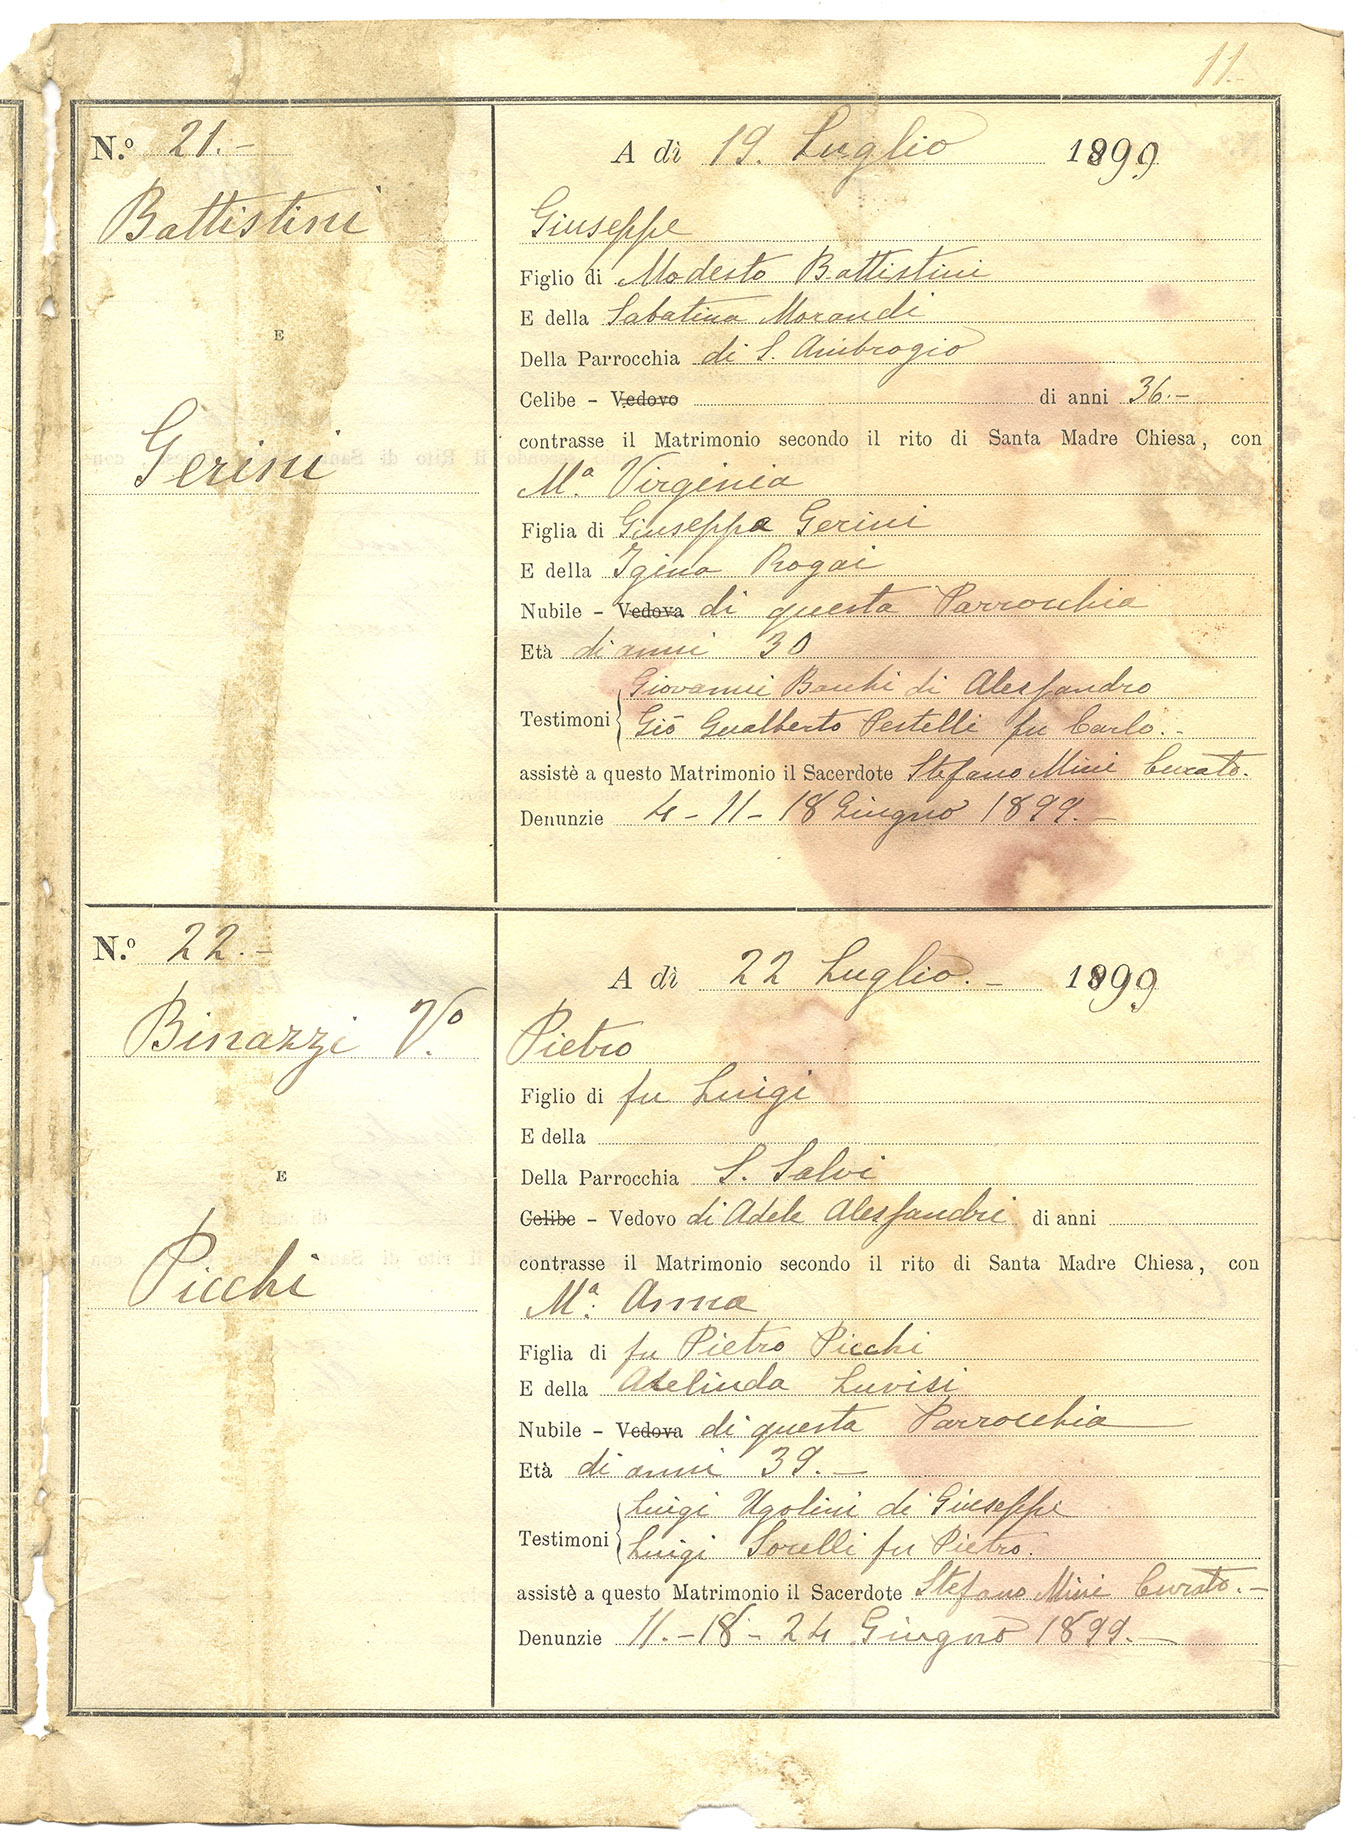 11.
N.º 21.-
Battistini
E
Gerini
A dì 19. Luglio 1899
Giuseppe
Figlio di Modesto Battistini
E della Sabatina Morandi
Della Parrocchia di S. Ambrogio
Celibe - Vedovo di anni 36.-
contrasse il Matrimonio secondo il rito di Santa Madre Chiesa, con
Mª. Virginia
Figlia di Giuseppe Gerini
E della Igina Rogai
Nubile - Vedova di questa Parrocchia
Età di anni 30
Giovanni Banchi di Alessandro
Testimoni
Gio Gualberto Pestelli fu Carlo.-
assistè a questo Matrimonio il Sacerdote Stefano Mini Curato.
Denunzie 4-11-18 Giugno 1899.-
N.º 22.-
Binazzi Vº.
E
Picchi
A dì 22 Luglio.- 1899
Pietro
Figlio di fu Luigi
E della
Della Parrocchia S. Salvi
Celibe - Vedovo di Adele Alessandri di anni
contrasse il Matrimonio secondo il rito di Santa Madre Chiesa, con
Mª. Anna
Figlia di fu Pietro Picchi
E della Adelinda Luvisi
Nubile - Vedova di questa Parrocchia
Età di anni 39.-
Luigi Ugolini di Giuseppe
Testimoni
Luigi Sorelli fu Pietro.
assistè a questo Matrimonio il Sacerdote Stefano Mini Curato.-
Denunzie 11.-18-24 Giugno 1899.-